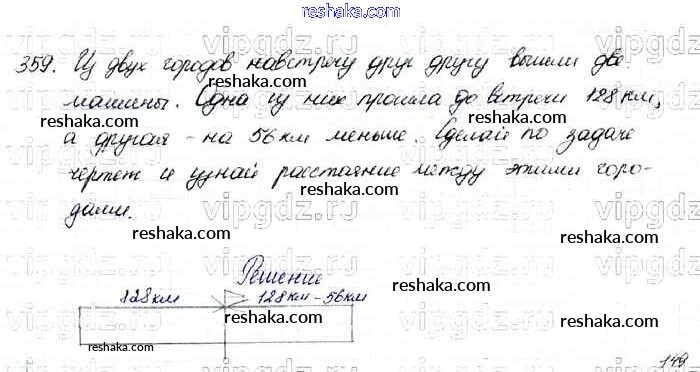 reshaka.com
359. Из двух городов навстречу друг другу вышли две
машины. Одна из них прошла до встречи 128 км,
reshaka.com
а другая - на 56 км меньше. Сделай по задаче
чертеж и узнай расстояние между этими горо-
reshaka.com
reshaka.com
дами.
reshaka.com
reshaka.com
Решение
reshaka.com
128 км 128 км - 56 км
reshaka.com
reshaka.com
reshaka.com
149
vipgdz.ru